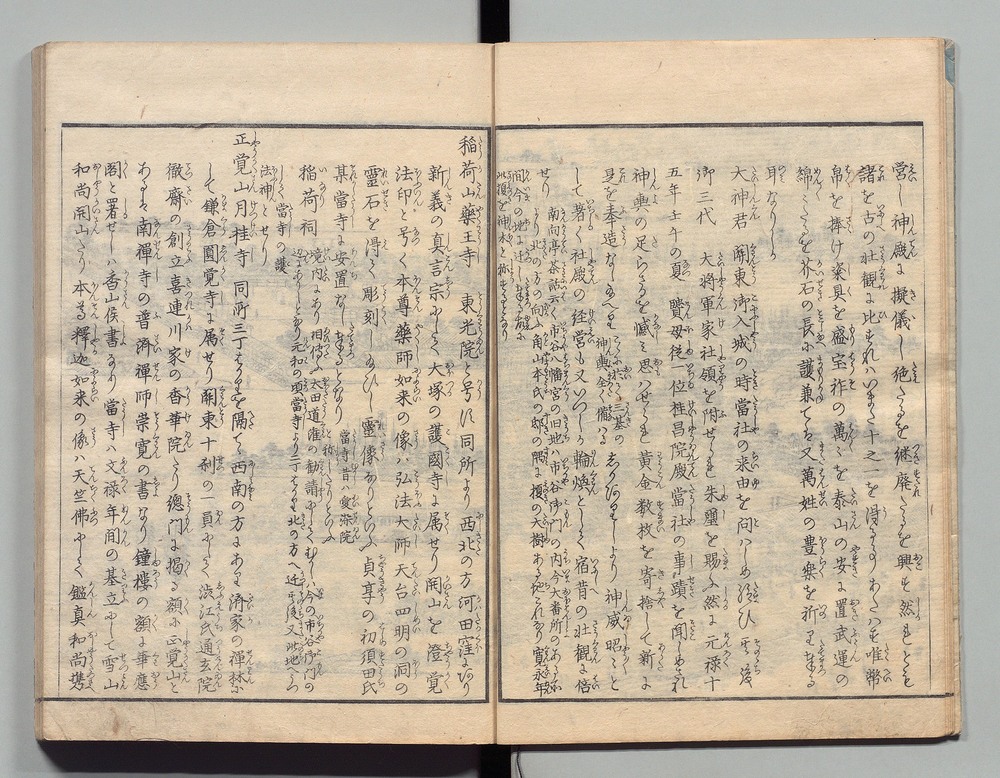 営し神殿に擬儀し絶たるを継廃たるを興も然れとも
諸を古の社観に比すれハいまた十之一を得るのみあたハす唯幣
帛を捧け粢具を盛宝祚の萬々を泰山の安に置武運の
綿々たるを芥石の長に護兼てハ又萬姓の豊楽を祈り奉る
耳なり
大神君 関東御入城の時當社の来由を問ハしめ給ひ其後
御三代 大将軍家社領を附せられ朱璽を賜ふ然に元禄十
五年壬午の夏 賢母従一位桂昌院殿當社の事蹟を聞しめされ
神輿の足らさるを憾と思ハせられ黄金数枚を寄捨して新に
是を奉造なしめ給ふ 三基の神輿全く備ハる しかりしより神威昭々と
して著く社殿の経営も又いつしか輪煥として宿昔の壮観に倍
せり
南向亭茶話云く市谷八幡宮の旧地ハ市谷御門の内今大番所のあるあたり
より北の方の向ふ角山本氏の邸の隅に榎の大樹ある地これなり寛永年
間今の地に迁し
此榎を神木と称すとなり
稲荷山藥王寺 東光院と号ス同所より西北の方河田窪にあり
新義の真言宗にして大塚の護國寺に属せり開山を澄覚
法印と号く本尊藥師如来の像ハ弘法大師天台四明の洞の
靈石を得て彫刻し給ひし靈像なりといふ貞享の初須田氏
某當寺に安置なし奉るとなり 當寺昔ハ愛染院と称しけりといふ
稲荷祠 境内にあり相傳ふ太田道潅の勧請にしてむかしハ今の市谷御門の
辺にありしとなり元和の頃當寺より三丁はかり北の方へ迁し其後又此地にうつして
當寺の護
法神とせり
正覚山月桂寺 同所三丁はかりを隔て西南の方にあり済家の禅林に
して鎌倉圓覚寺に属せり関東十刹の一員にして渋江氏通玄院
徹齋の創立喜連川家の香華院たり總門に掲る額に正覚山と
あるハ南禅寺の普済禅師崇寛の書なり鐘樓の額に華應
閣と署せしハ香山侯書なり當寺ハ文禄年間の基立にして雪山
和尚開山たり本尊釋迦如来の像ハ天竺佛にして鑑真和尚携